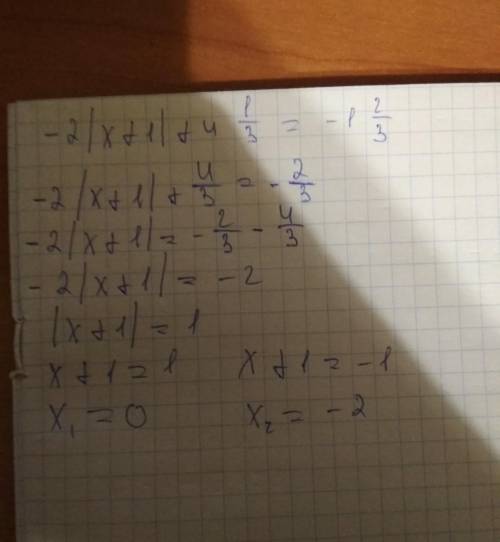 -2|x+1| + 4 1/3 = -1 2/3
-2|x+1| + 4/3 = -2/3
-2|x+1| = -2/3 - 4/3
-2|x+1| = -2
|x+1| = 1
x+1=1 x+1=-1
x₁ = 0 x₂ = -2